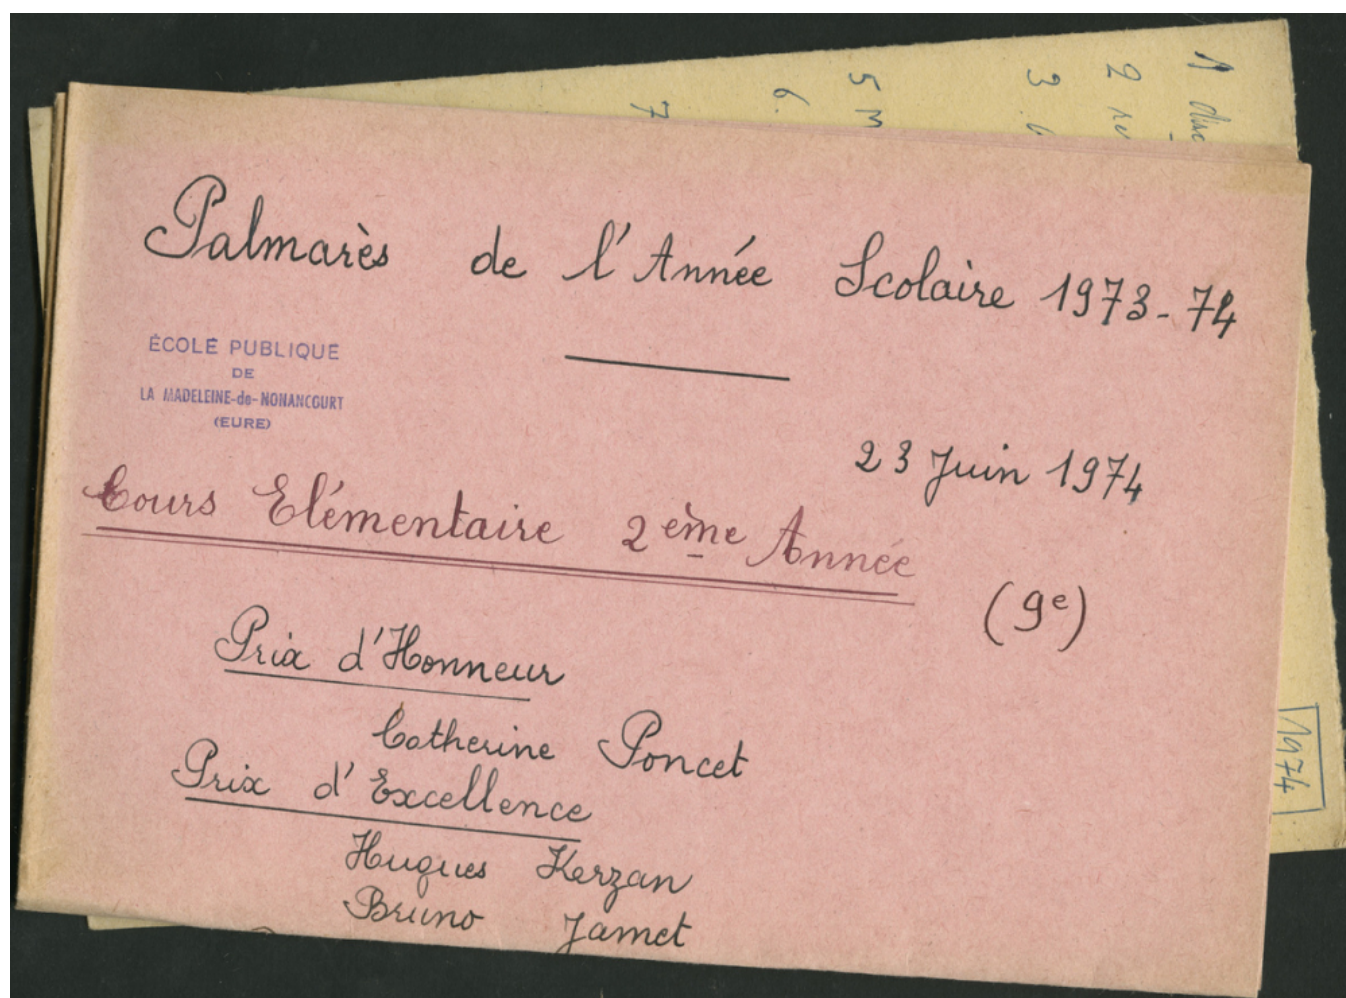 Palmarès de l'Année Scolaire 1973-74
ÉCOLE PUBLIQUE
DE
LA MADELEINE-de-NONANCOURT
(EURE)
23 Juin 1974
Cours Elémentaire 2ème Année
(9e)
Prix d'Honneur
Catherine Poncet
Prix d'Excellence
Hugues Kerzan
Bruno Jamet
1
2
3
5 m
6.
7
1974